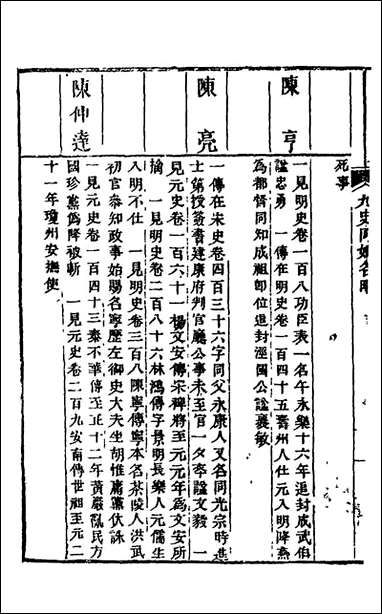 九史同姓名略
死事
陳亨
一見明史卷一百八功臣表一名午永樂十六年追封咸武伯
諡忠勇 一傳在明史卷一百四十五壽州人仕元入明降燕
為都督同知成祖卽位追封涇國公諡襄敏
陳亮
一傳在宋史卷四百三十六字同父永康人又名同光宗時進
士第授簽書建康府判官廳公事未至官一夕卒諡文毅 一
見元史卷一百六十一楊文安傳宋裨將至元元年為文安所
擒 一見明史卷二百八十六林鴻傳字景明長樂人元儒生
入明不仕 一見明史卷三百八陳寧傳寧本名茶陵人洪武
初官參知政事始賜名寧歷左御史大夫坐胡惟庸黨伏誅
陳仲達
一見元史卷一百四十三泰不華傳至正十二年黃巖亂民方
國珍黨為降被斬 一見元史卷二百九安南傳世祖至元二
十一年瓊州安撫使